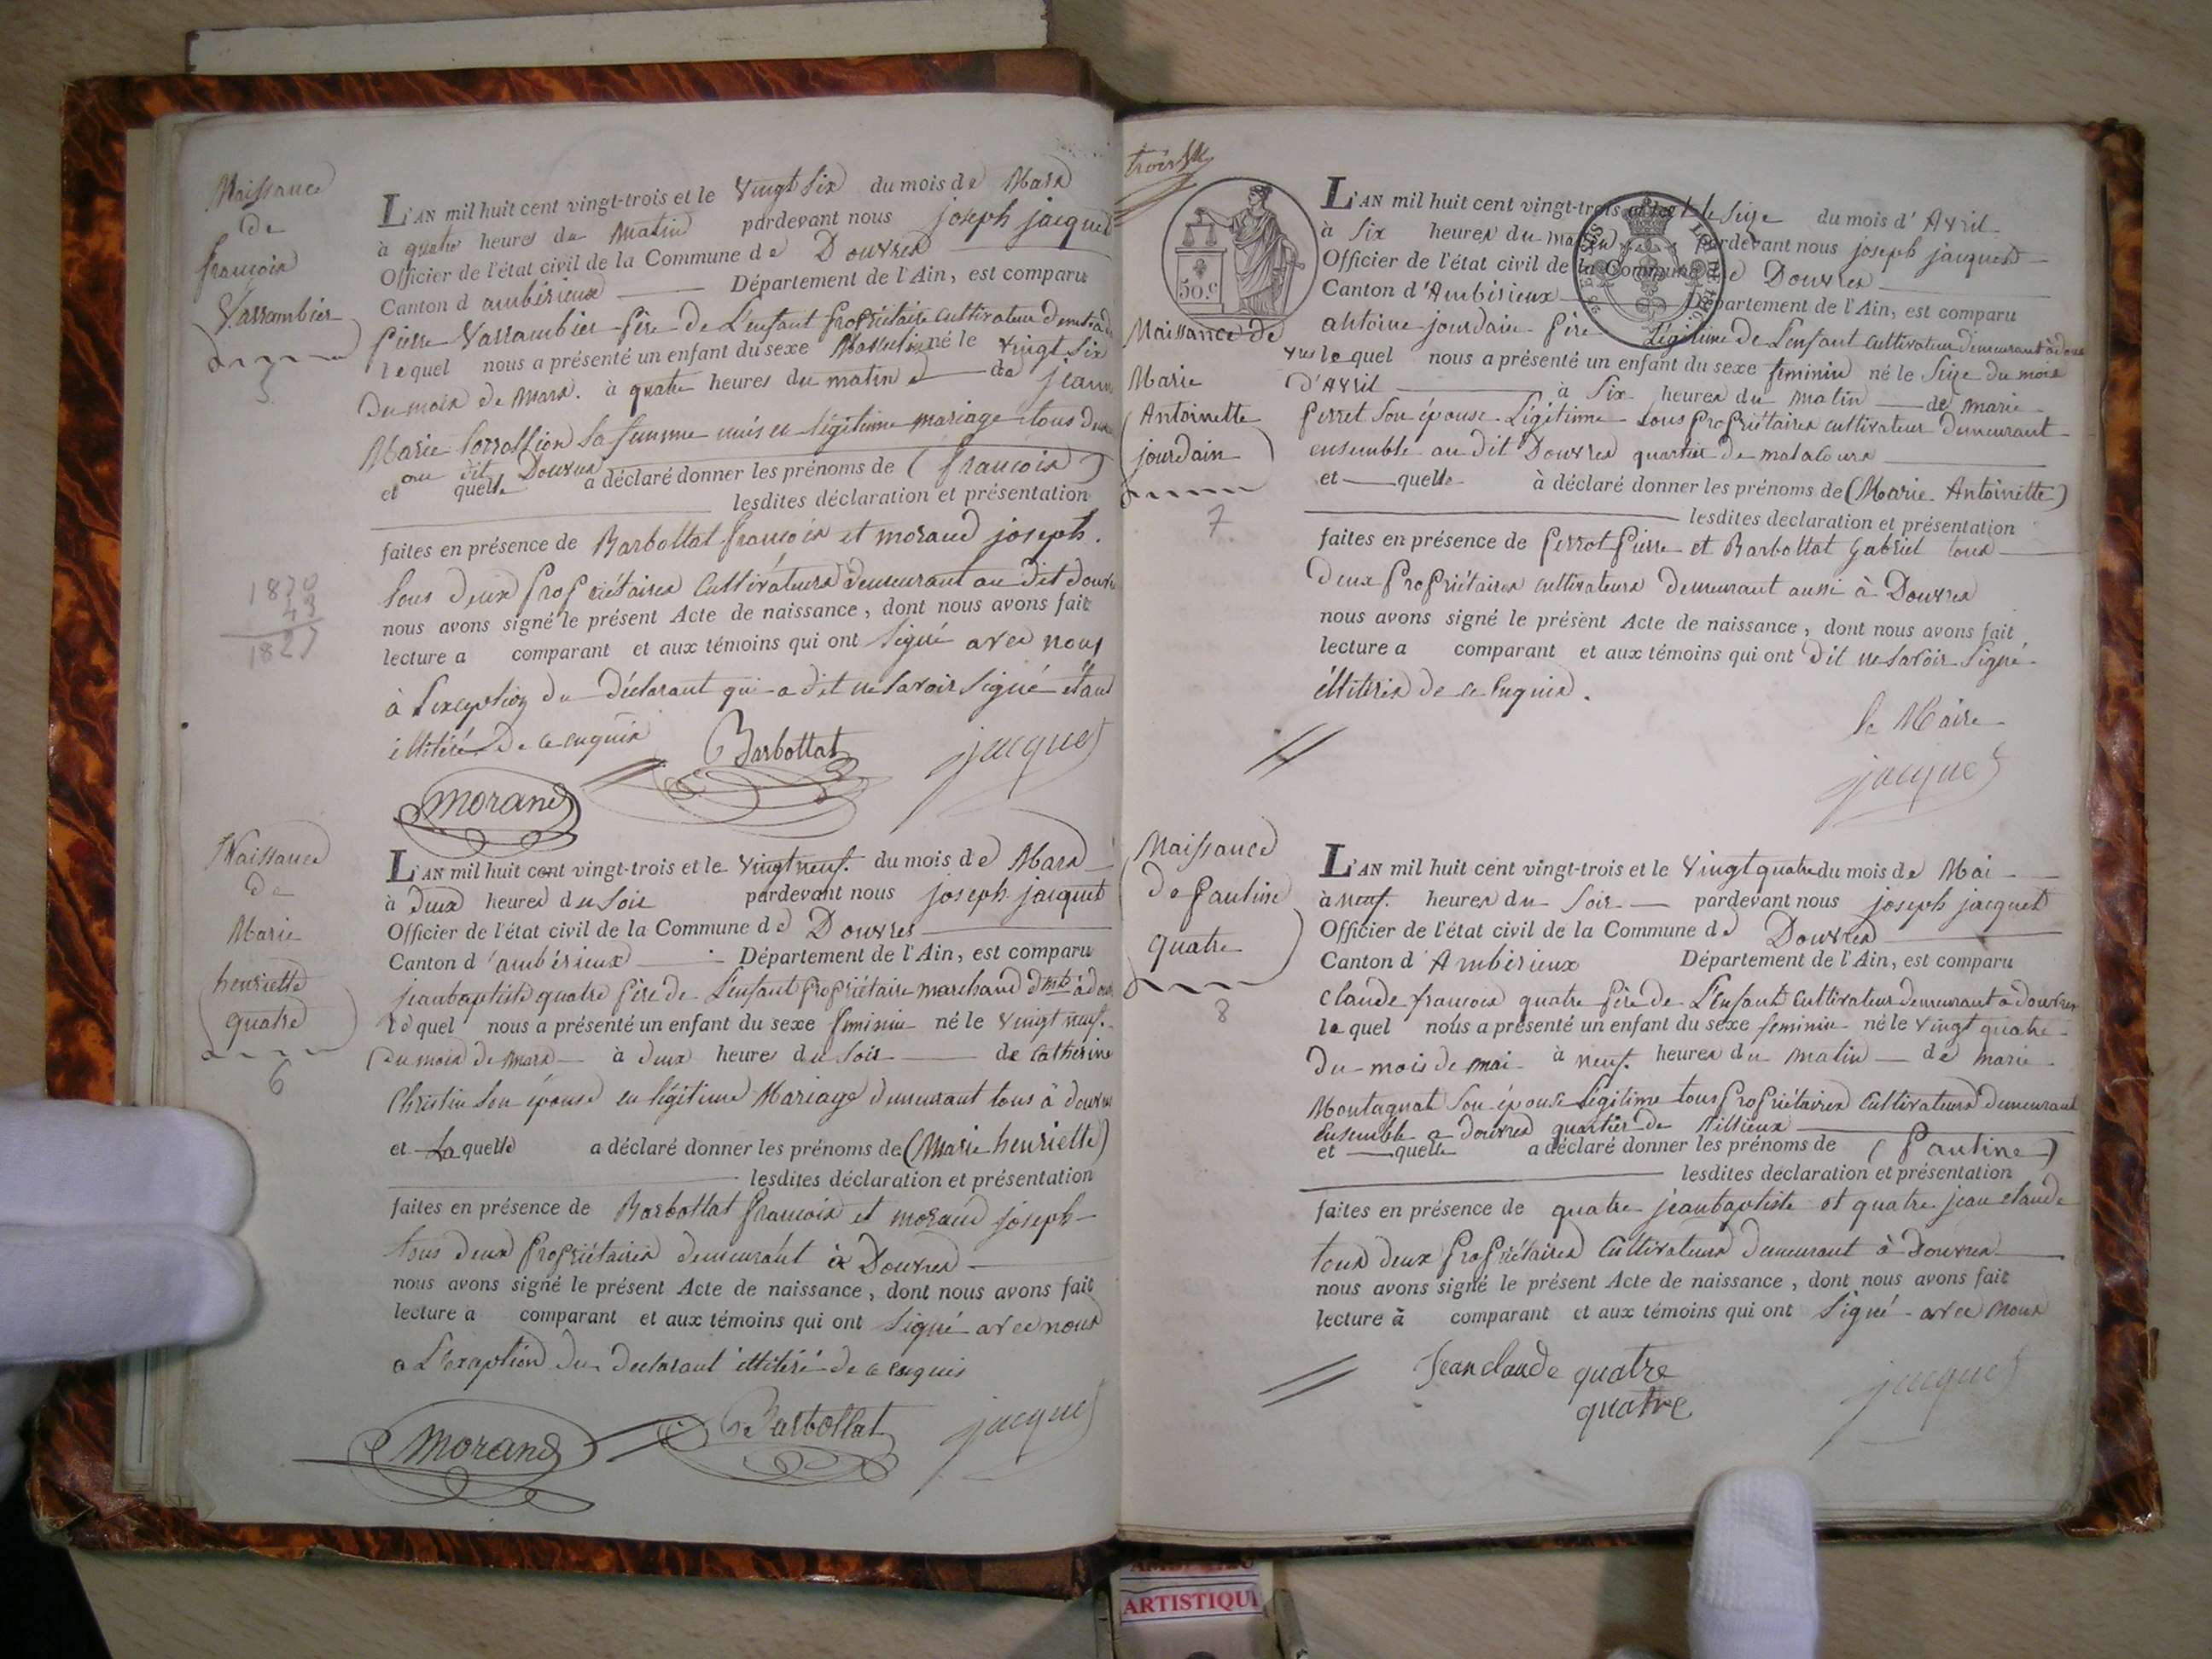 Naissance
de
françois
Varrambier
5
L'AN mil huit cent vingt-trois et le vingt six du mois de Mars
à quatre heures du matin pardevant nous joseph jacquet
Officier de l'état civil de la Commune de Douvres
Canton d'ambérieux Département de l'Ain, est comparu
pierre Varrambier père de L'enfant propriétaire cultivateur
lequel nous a présenté un enfant du sexe Masculin né le vingt six
Du mois de Mars. à quatre heures du matin de jeanne
Marie sa femme unis en légitime mariage tous deux
au dit Douvres
et quelle a déclaré donner les prénoms de (françois)
lesdites déclaration et présentation
faites en présence de Barbottat françois et morand joseph.
tous deux propriétaires cultivateurs demeurant au dit douvres
nous avons signé le présent Acte de naissance, dont nous avons fait
lecture a comparant et aux témoins qui ont signé avec nous
à l'exception du Déclarant qui a dit ne savoir signé étant
illitéré de ce enquis
Barbottat jacquet
morand
1870
43
1827
Naissance
de
Marie
henriette
quatre
6
L'AN mil huit cent vingt-trois et le vingt neuf. du mois de Mars
à deux heures du soir pardevant nous joseph jacquet
Officier de l'état civil de la Commune de Douvres
Canton d'ambérieux Département de l'Ain, est comparu
jeanbaptiste quatre père de L'enfant propriétaire marchand dmt à douvres
lequel nous a présenté un enfant du sexe feminin né le vingt neuf.
du mois de mars à deux heures du soir de Catherine
Christin son épouse en légitime Mariage demeurant tous à douvres
et La quelle a déclaré donner les prénoms de (Marie henriette)
lesdites déclaration et présentation
faites en présence de Barbottat françois et morand joseph
tous deux propriétaires demeurant à Douvres
nous avons signé le présent Acte de naissance, dont nous avons fait
lecture a comparant et aux témoins qui ont signé avec nous
a L'exception du declarant illitéré de ce enquis
morand Barbottat jacquet
trois
50.c
Naissance de
Marie
Antoinette
jourdain
7
L'AN mil huit cent vingt-trois et le seize du mois d'Avril
à six heures du matin pardevant nous joseph jacquet
Officier de l'état civil de la Commune de Douvres
Canton d'Ambérieux Département de l'Ain, est comparu
antoine jourdain père Légitime de L'enfant cultivateur demeurant à dou
vres lequel nous a présenté un enfant du sexe feminin né le seize du mois
D'Avril à six heures du matin de marie
perret son épouse Légitime tous propriétaires cultivateur demeurant
ensemble au dit Douvres quartier de malacours
et quelle à déclaré donner les prénoms de (Marie Antoinette)
lesdites declaration et présentation
faites en présence de perrot pierre et Barbottat gabriel tous
deux propriétaires cultivateurs demeurant aussi à Douvres
nous avons signé le présent Acte de naissance, dont nous avons fait
lecture a comparant et aux témoins qui ont dit ne savoir signé
illitérés de ce enquis.
le Maire
jacquet
Naissance
de pauline
quatre
8
L'AN mil huit cent vingt-trois et le vingt quatre du mois de Mai
à neuf. heures du soir pardevant nous joseph jacquet
Officier de l'état civil de la Commune de Douvres
Canton d'Ambérieux Département de l'Ain, est comparu
claude françois quatre père de L'enfant cultivateur demeurant a douvres
lequel nous a présenté un enfant du sexe feminin né le vingt quatre
Du mois de mai à neuf. heures du matin de marie
Montagnat son épouse Légitime tous propriétaires cultivateurs demeurant
Ensemble a douvres quartier de
et quelle a déclaré donner les prénoms de (pauline)
lesdites déclaration et présentation
faites en présence de quatre jeanbaptiste et quatre jean claude
tous deux propriétaires cultivateurs demeurant à Douvres
nous avons signé le présent Acte de naissance, dont nous avons fait
lecture à comparant et aux témoins qui ont signé avec nous
Jean claude quatre
quatre
jacquet
ARTISTIQU